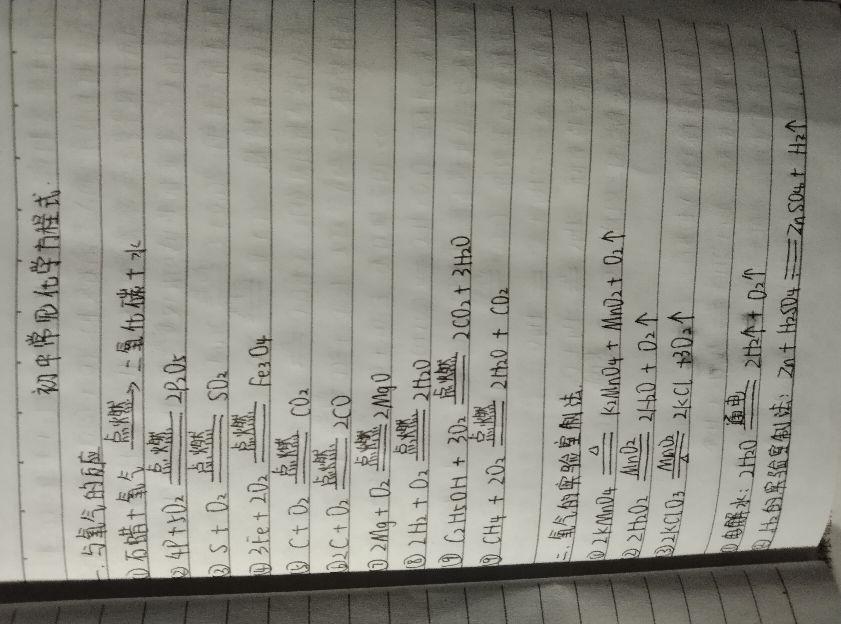 初中常见化学方程式.
一. 与氧气的反应
① 石蜡 + 氧气 点燃→ 二氧化碳 + 水
② 4P + 5O₂ 点燃══ 2P₂O₅
③ S + O₂ 点燃══ SO₂
④ 3Fe + 2O₂ 点燃══ Fe₃O₄
⑤ C + O₂ 点燃══ CO₂
⑥ 2C + O₂ 点燃══ 2CO
⑦ 2Mg + O₂ 点燃══ 2MgO
⑧ 2H₂ + O₂ 点燃══ 2H₂O
⑨ C₂H₅OH + 3O₂ 点燃══ 2CO₂ + 3H₂O
⑨ CH₄ + 2O₂ 点燃══ 2H₂O + CO₂
二. 氧气的实验室制法.
① 2KMnO₄ △══ K₂MnO₄ + MnO₂ + O₂↑
② 2H₂O₂ MnO₂══ 2H₂O + O₂↑
③ 2KClO₃ MnO₂══△ 2KCl + 3O₂↑
① 电解水: 2H₂O 通电══ 2H₂↑ + O₂↑
② H₂的实验室制法: Zn + H₂SO₄ ══ ZnSO₄ + H₂↑